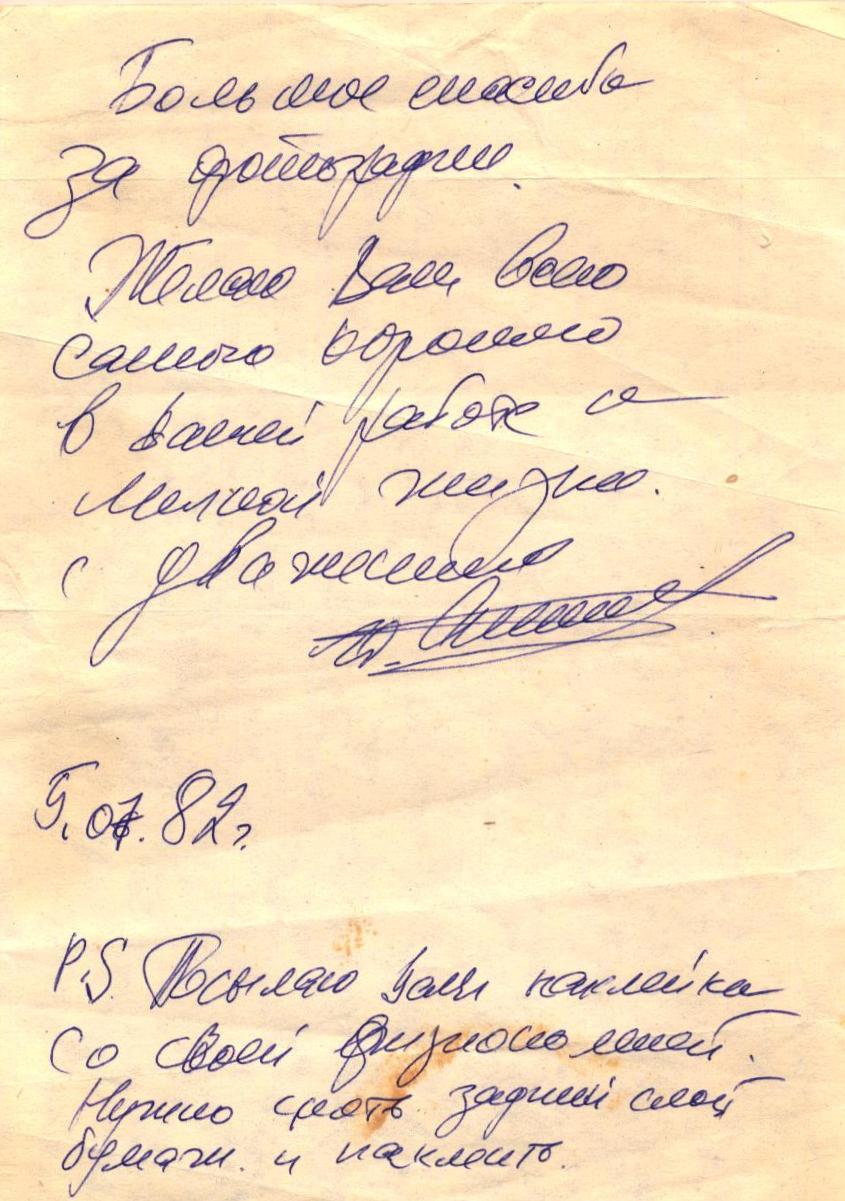 Большое спасибо
за фотографии.
Желаю Вам всего
самого хорошего
в вашей работе и
личной жизни.
с уважением
5.07.82г.
P.S. Посылаю Вам наклейки
со своей физиономией.
Нужно снять задний слой
бумаги. и наклеить.